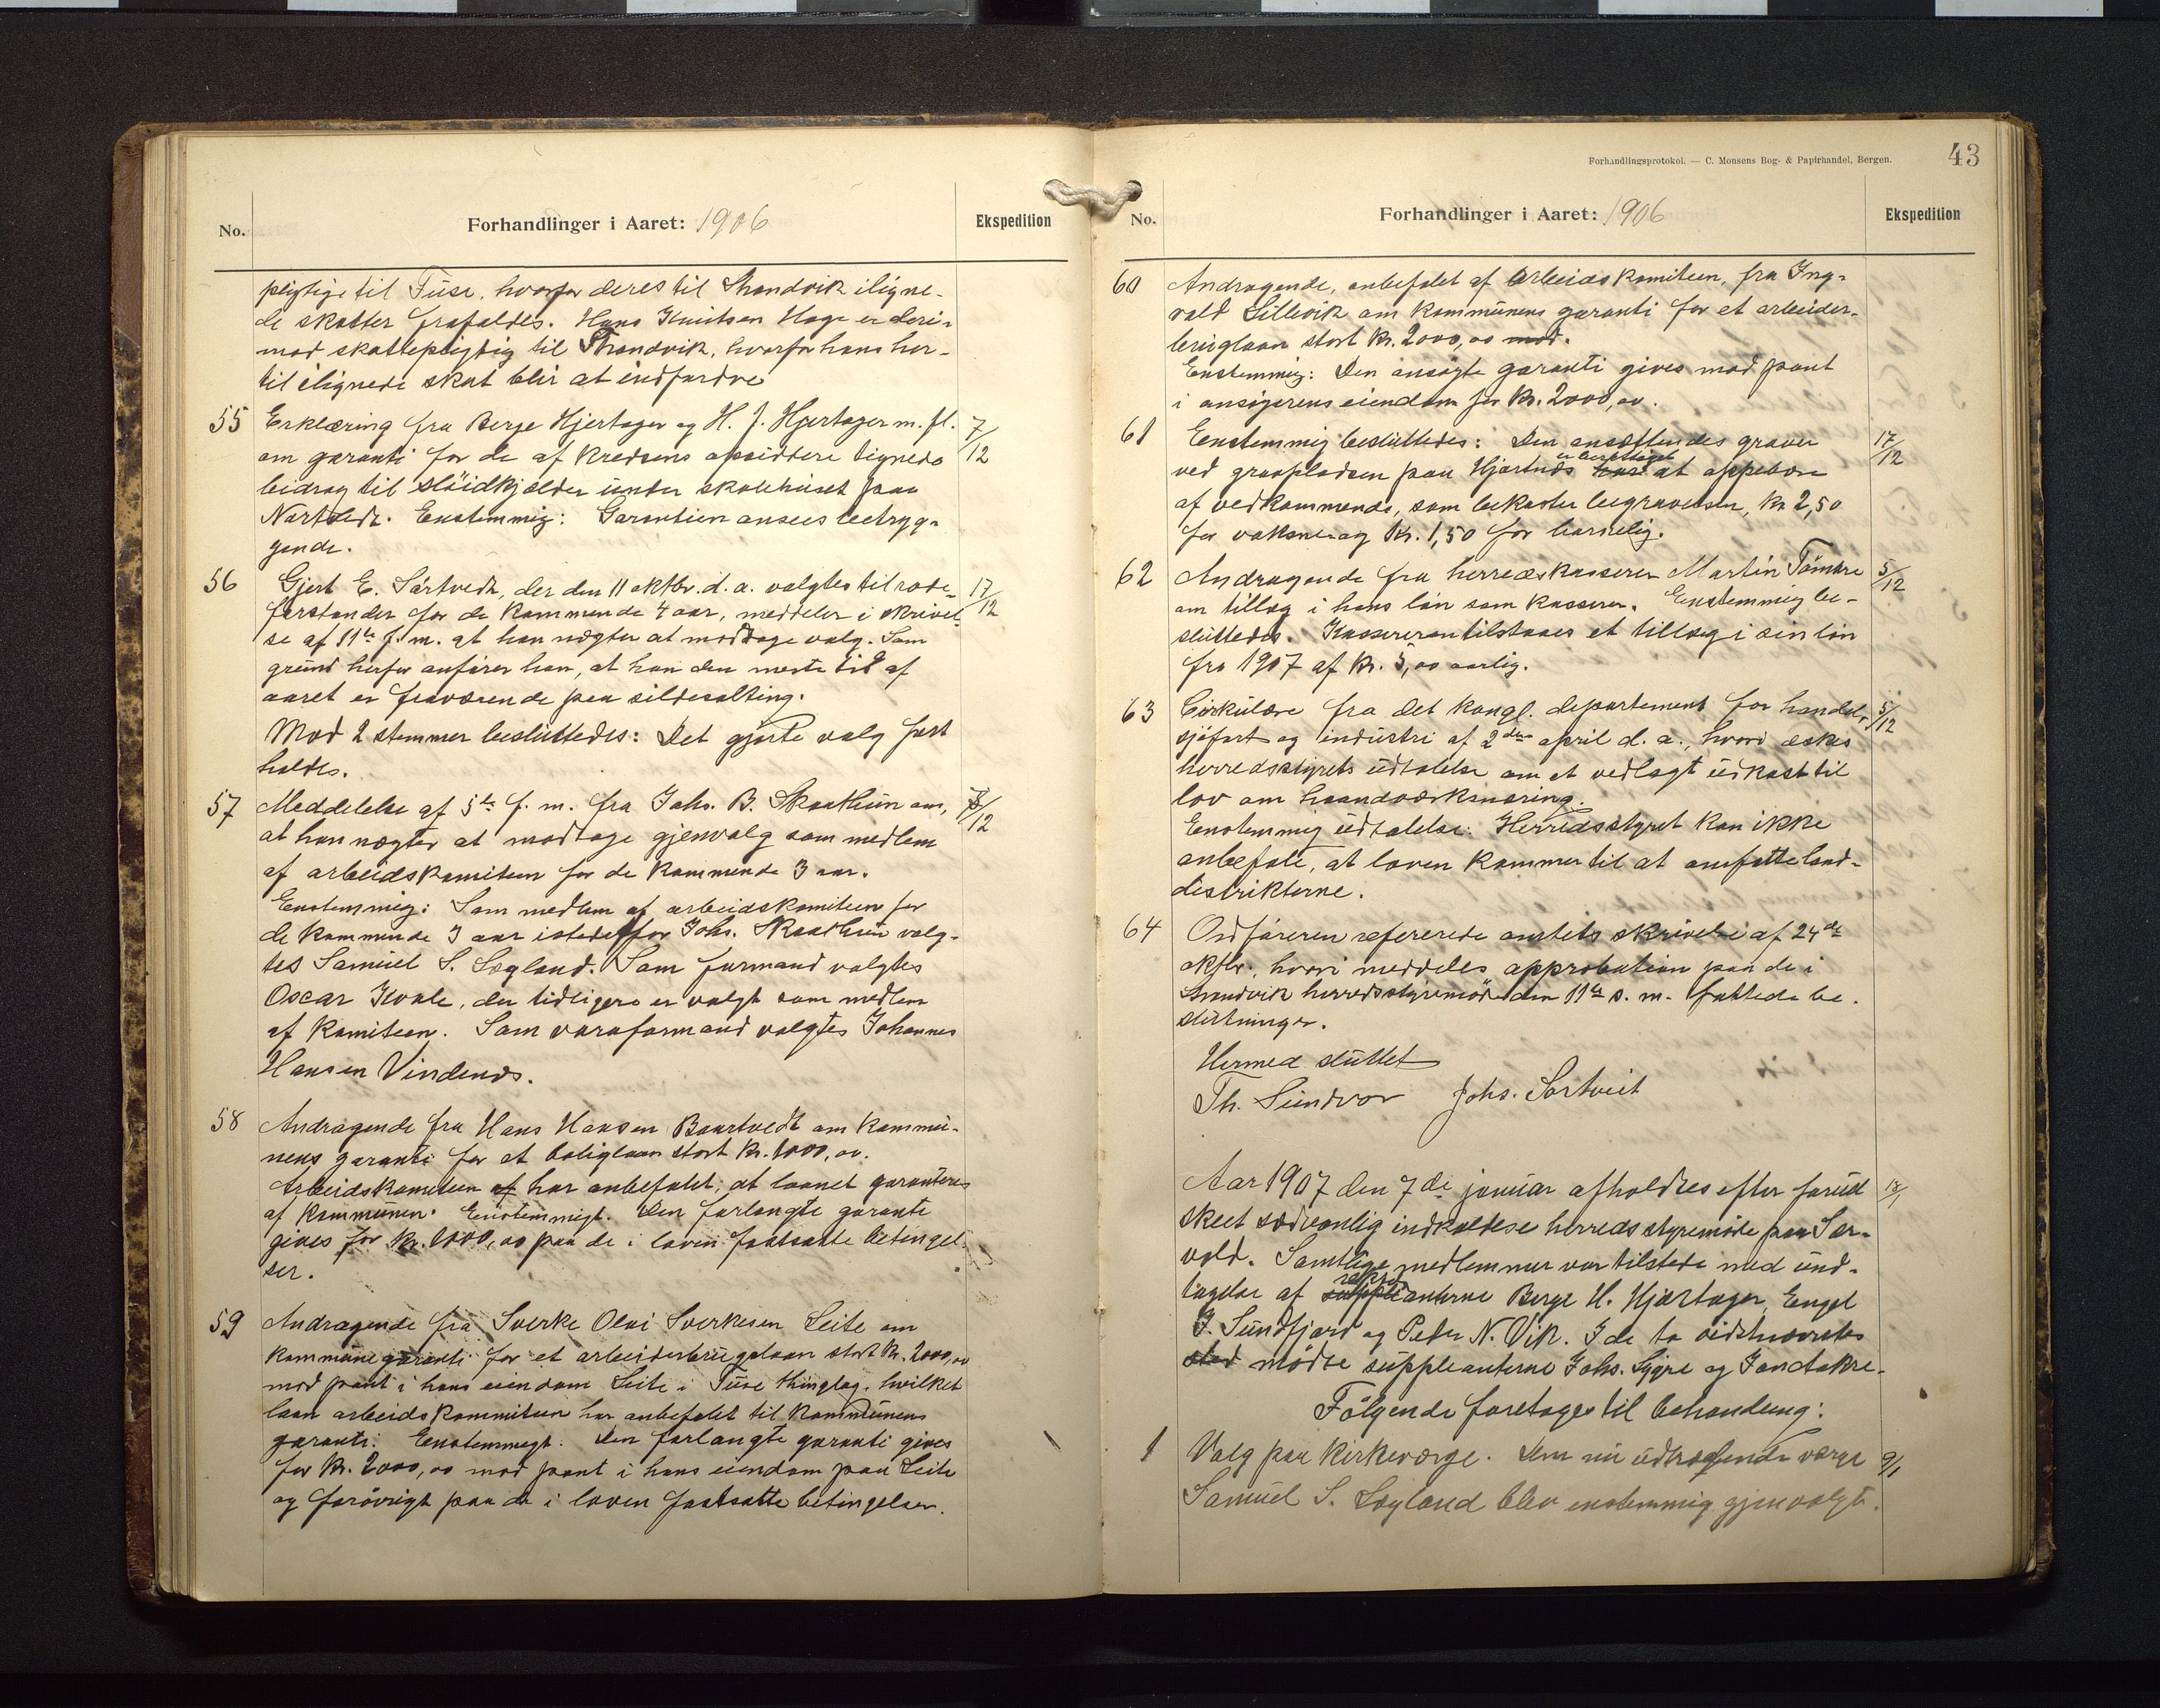 No.
Forhandlinger i Aaret: 1906
Ekspedition
pligtige til Füse, hvorfor deres til Strandvik iligne-
de skatter frafaldes. Hans Knutsen Hage er deri-
mod skattepligtig til Strandvik, hvorfor hans her-
til ilignede skat blir at indfordre
55 Erklæring fra Berge Hjertager og H. J. Hjertager m. fl. 7/12
om garanti for de af kredsens opsiddere tegnede
bidrag til slöidkjælder ünder skolehüset paa
Nortvedt. Enstemmig: Garantien ansees betryg-
gende.
56 Gjert E. Sørtvedt, der den 11 oktbr. d. a. valgtes til rode- 17/12
forstander for de kommende 4 aar, meddeler i skrivel-
se af 11te f. m. at han nægter at modtage valg. Som
gründ herfor anfører han, at han den meste tid af
aaret er fraværende paa sildesalting.
Mod 2 stemmer beslüttedes: Det gjorte valg fast
holdes.
57 Meddelelse af 5te f. m. fra Johs. B. Skaathün om, /12
at han nægter at modtage gjenvalg som medlem
af arbeidskomiteen for de kommende 3 aar.
Enstemmig: Som medlem af arbeidskomiteen for
de kommende 3 aar istedetfor Johs. Skaathün valg-
tes Samüel S. Løgland. Som formand valgtes
Oscar Kvale, der tidligere er valgt som medlem
af komiteen. Som varaformand valgtes Johannes
Hansen Vindenes.
58 Andragende fra Hans Hansen Baartvedt om kommü-
nens garanti for et boliglaan stort kr. 1000,00.
Arbeidskomiteen af har anbefalet, at laanet garanteres
af kommünen. Enstemmigt. Den forlangte garanti
gives for kr. 1000,00 paa de i loven fastsatte betingel-
ser.
59 Andragende fra Sverke Olai Sverkesen Leite om
kommünegaranti for et arbeiderbrügslaan stort kr. 2000,00
mod pant i hans eiendom Leite i Füse thinglag, hvilket
laan arbeidskommiteen har anbefalet til kommünens
garanti. Enstemmigt. Den forlangte garanti gives
for kr. 2000,00 mod pant i hans eiendom paa Leite
og forövrigt paa de i loven fastsatte betingelser.
Forhandlingsprotokol. — C. Monsens Bog- & Papirhandel, Bergen. 43
No.
Forhandlinger i Aaret: 1906
Ekspedition
60 Andragende, anbefalet af arbeidskomiteen, fra Ing-
vald Lillevik om kommünens garanti for et arbeider-
brüglaan stort kr. 2000,00 mod.
Enstemmig: Den ansøgte garanti gives mod pant
i ansögerens eiendom for kr. 2000,00.
61 Enstemmig beslüttedes: Den ansættendes graver 17/12
er berettiget
ved gravpladsen paa Hjartnæs har at oppebære
af vedkommende, som bekoster begravelsen, kr 2,50
for voksne og kr. 1,50 for barnelig.
62 Andragende fra herredskasserer Martin Tömbre 5/12
om tillæg i hans lön som kasserer. Enstemmig be-
slüttedes. Kassereren tilstaaes et tillæg i sin lön
fra 1907 af kr. 5,00 aarlig.
63 Cirkülære fra det kongl. departement for handel, 5/12
sjöfart og indüstri af 2den april d. a., hvori æskes
herredsstyrets üdtalelse om et vedlagt üdkast til
lov om haandværksnæring.
Enstemmig üdtalelse: Herredsstyret kan ikke
anbefale, at loven kommer til at omfatte land-
distrikterne.
64 Ordföreren refererede amtets skrivelse af 24de
oktbr., hvori meddeles approbation paa de i
Strandvik herredsstyremöde den 11te s. m. fattede be-
slütninger.
Hermed slüttet
Th. Sündvor Johs. Sortveit
Aar 1907 den 7de januar afholdtes efter forüd 18/1
skeet sædvanlig indkaldelse herredsstyremöde paa Sær-
vold. Samtlige medlemmer var tilstede med ünd-
repræ
tagelse af suppleanterne Berge H. Hjartager, Engel
J. Sündfjord og Peder N. Vik. I de to sidstnævntes
sted mödte süppleanterne Johs. Lygre og
Fölgende foretages til behandling:
1 Valg paa kirkeværge. Den nü üdtrædende værge 9/1
Samüel S. Løgland blev enstemmig gjenvalgt.